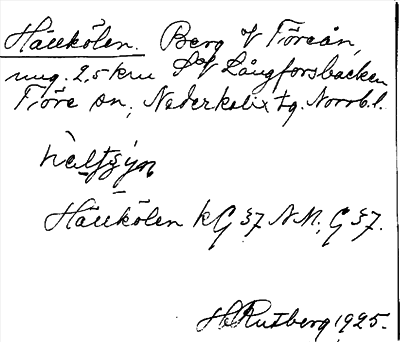 Hällkölen. Berg V Töreån,
ung. 2,5 km SV Långforsbacken
Töre sn, Nederkalix tg. Norrb.l.
Hällkölen KG 37 N.M., G 37.
H. Rutberg 1925.